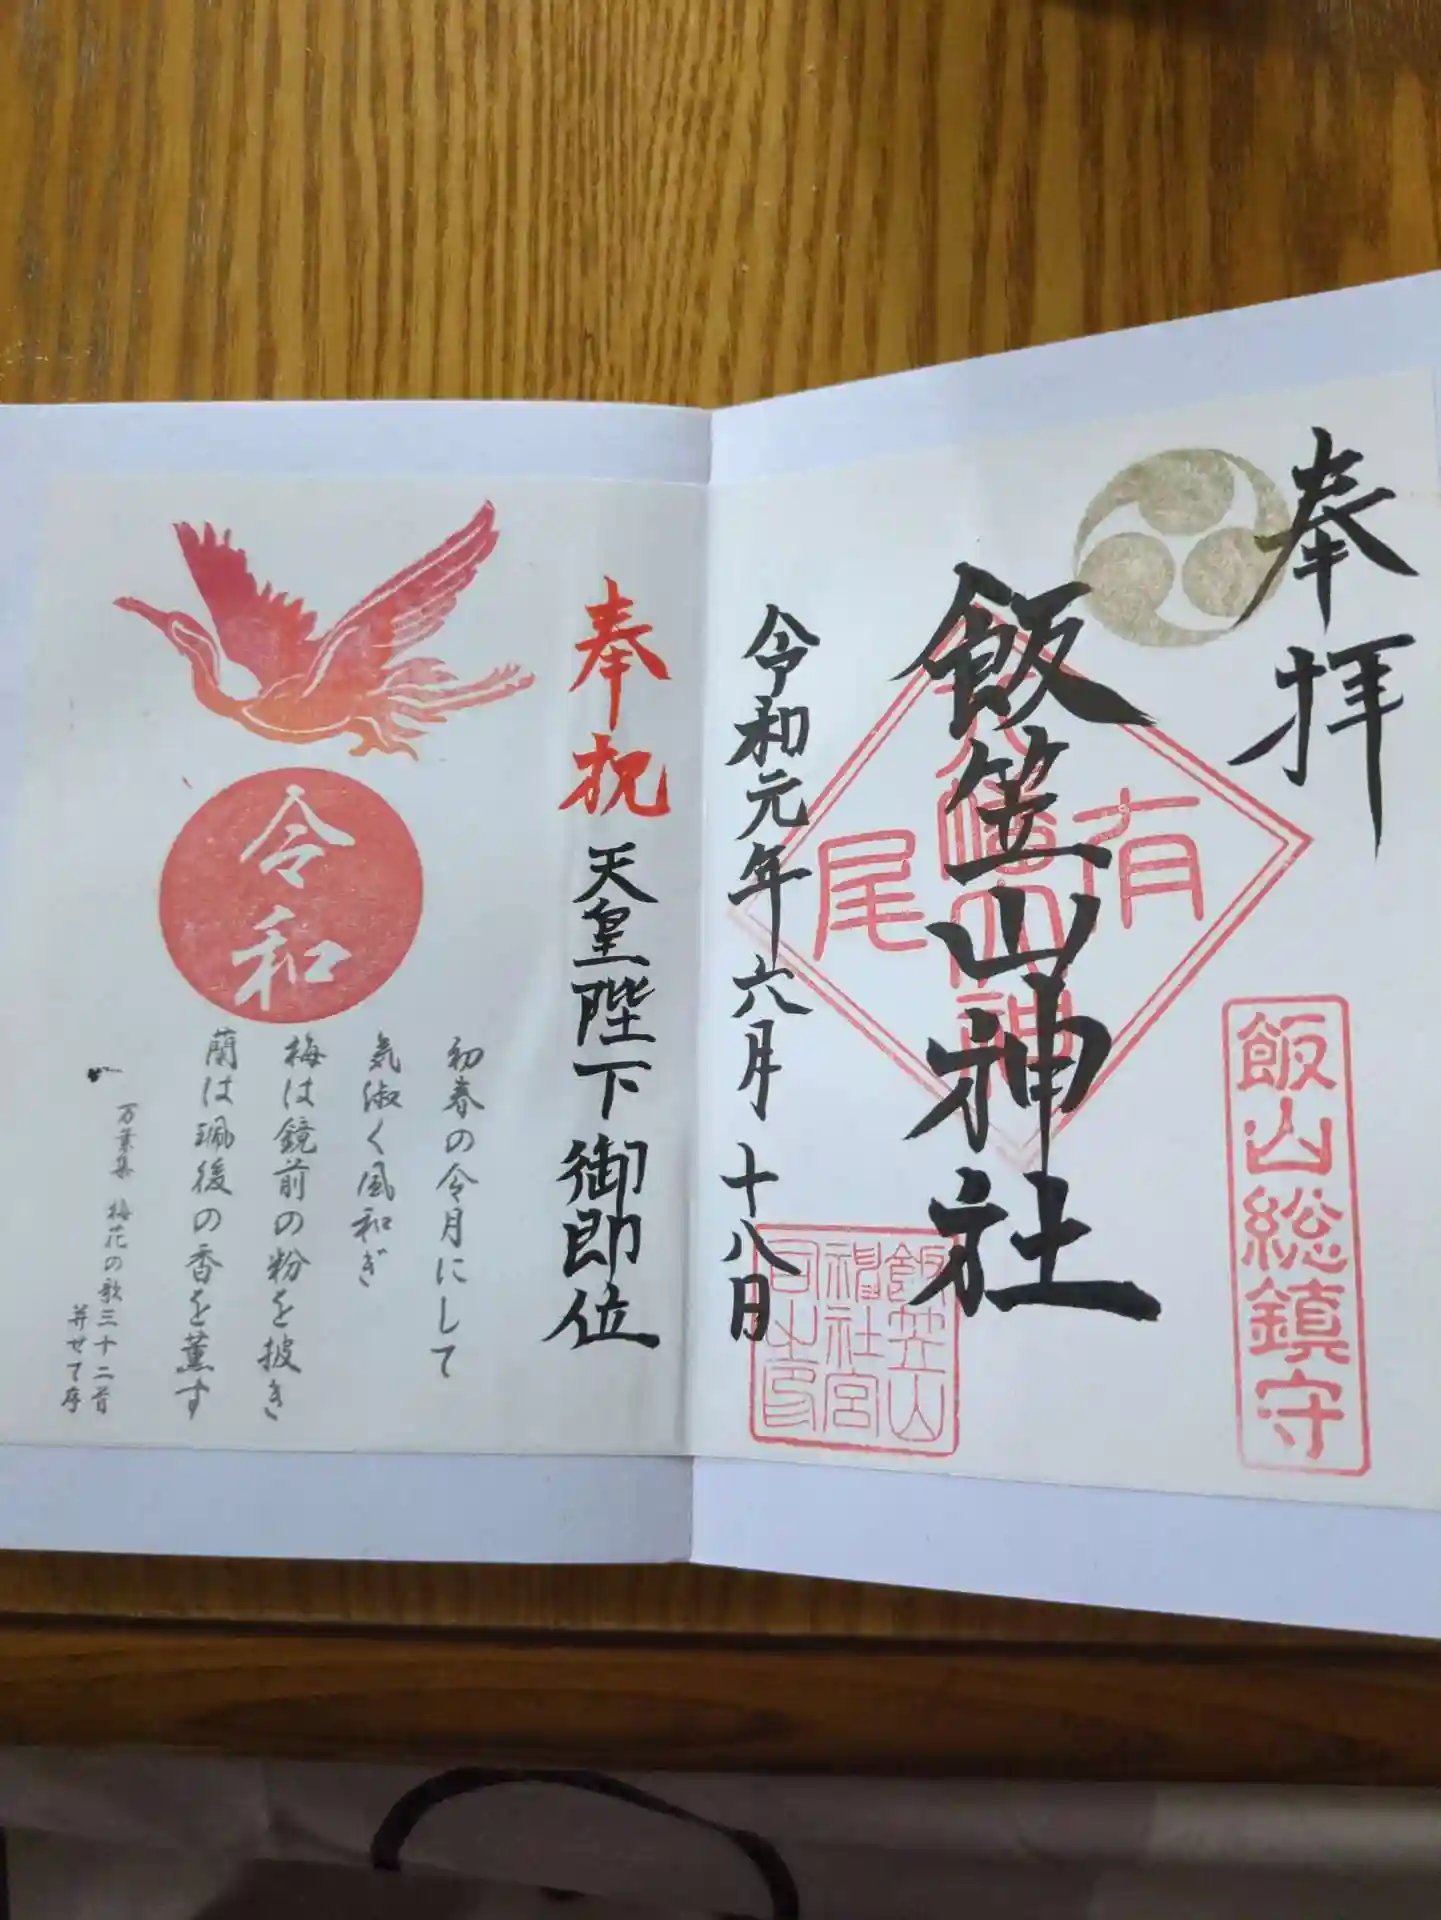 奉拝
飯笠山神社
八幡大神
有尾
飯山総鎮守
飯笠山
神社宮
司之印
令和元年六月十八日
奉祝 天皇陛下御即位
令和
初春の令月にして
気淑く風和ぎ
梅は鏡前の粉を披き
蘭は珮後の香を薫す
万葉集 梅花の歌三十二首
并せて序